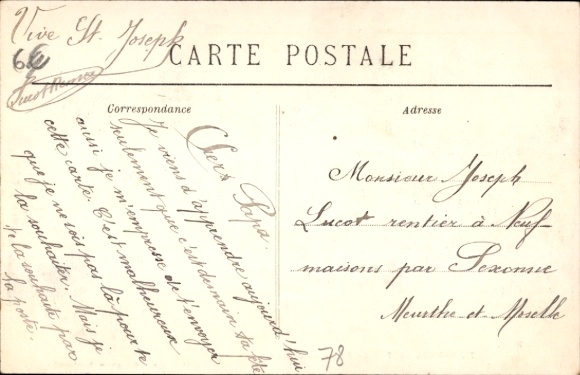 Vive St. Joseph
6€
CARTE POSTALE
Lucot
Correspondance
Adresse
Chers Papa.
Je viens d'apprendre aujourd'hui
seulement que c'est demain ta fête
aussi je m'empresse de t'envoyer
cette carte. C'est malheureux
que je ne sois pas là pour te
la souhaiter. Mais je
te la souhaite par
la poste.
Monsieur Joseph
Lucot rentier à Neuf-
maisons par Pexonne
Meurthe et Moselle
78